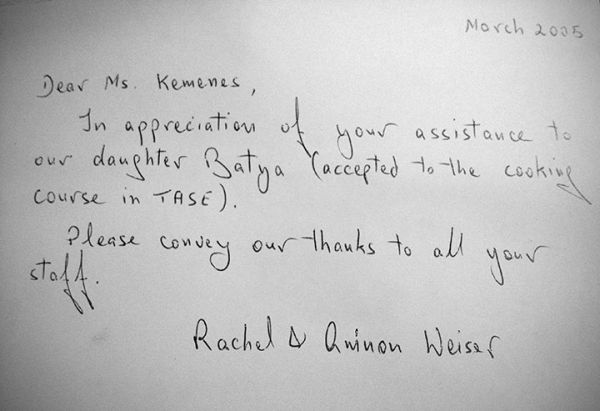 March 2005
Dear Ms. Kemenes,
In appreciation of your assistance to
our daughter Batya (accepted to the cooking
course in TASE).
Please convey our thanks to all your
staff.
Rachel & Aminon Weiser